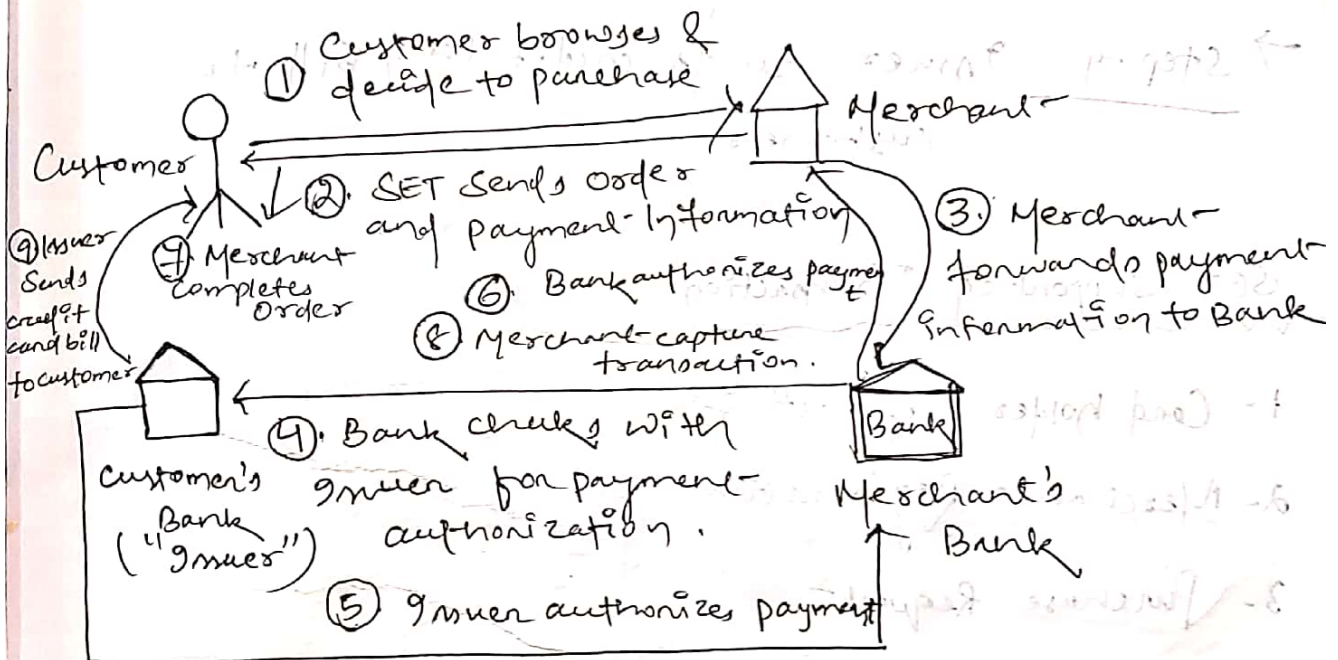 ① Customer browses &
decide to purchase
Merchant
Customer
②. SET Sends Order
and payment Information
③. Merchant
forwards payment
information to Bank
⑨ Issuer
Sends
credit
card bill
to customer
⑦. Merchant
Completes
Order
⑥. Bank authorizes payment
⑧ Merchant capture
transaction.
Bank
④. Bank checks with
Issuer for payment
authorization.
Customer's
Bank
("Issuer")
Merchant's
Bank
⑤ Issuer authorizes payment